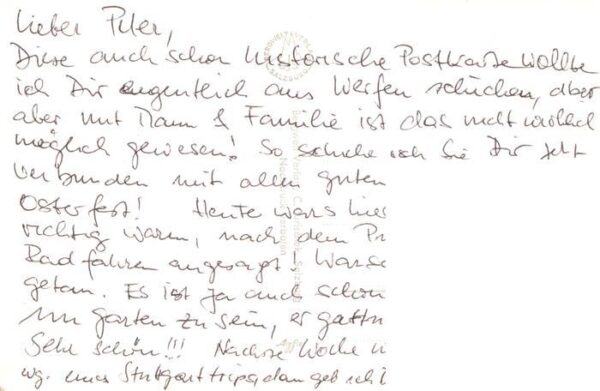 Lieber Peter,
Diese auch schon historische Postkarte wollte
ich Dir eigentlich aus Werfen schicken, aber
aber mit Mann & Familie ist das nicht wirklich
möglich gewesen! So schicke ich Sie Dir jetzt
verbunden mit allen guten
Osterfest! Heute wars hier
richtig warm, nach dem
Rad fahren angesagt!
getan. Es ist ja auch schon
im Garten zu sein, er
Sehr schön!!! Nächste Woche
wg. eines Stuttgarttrips, dann geb ich